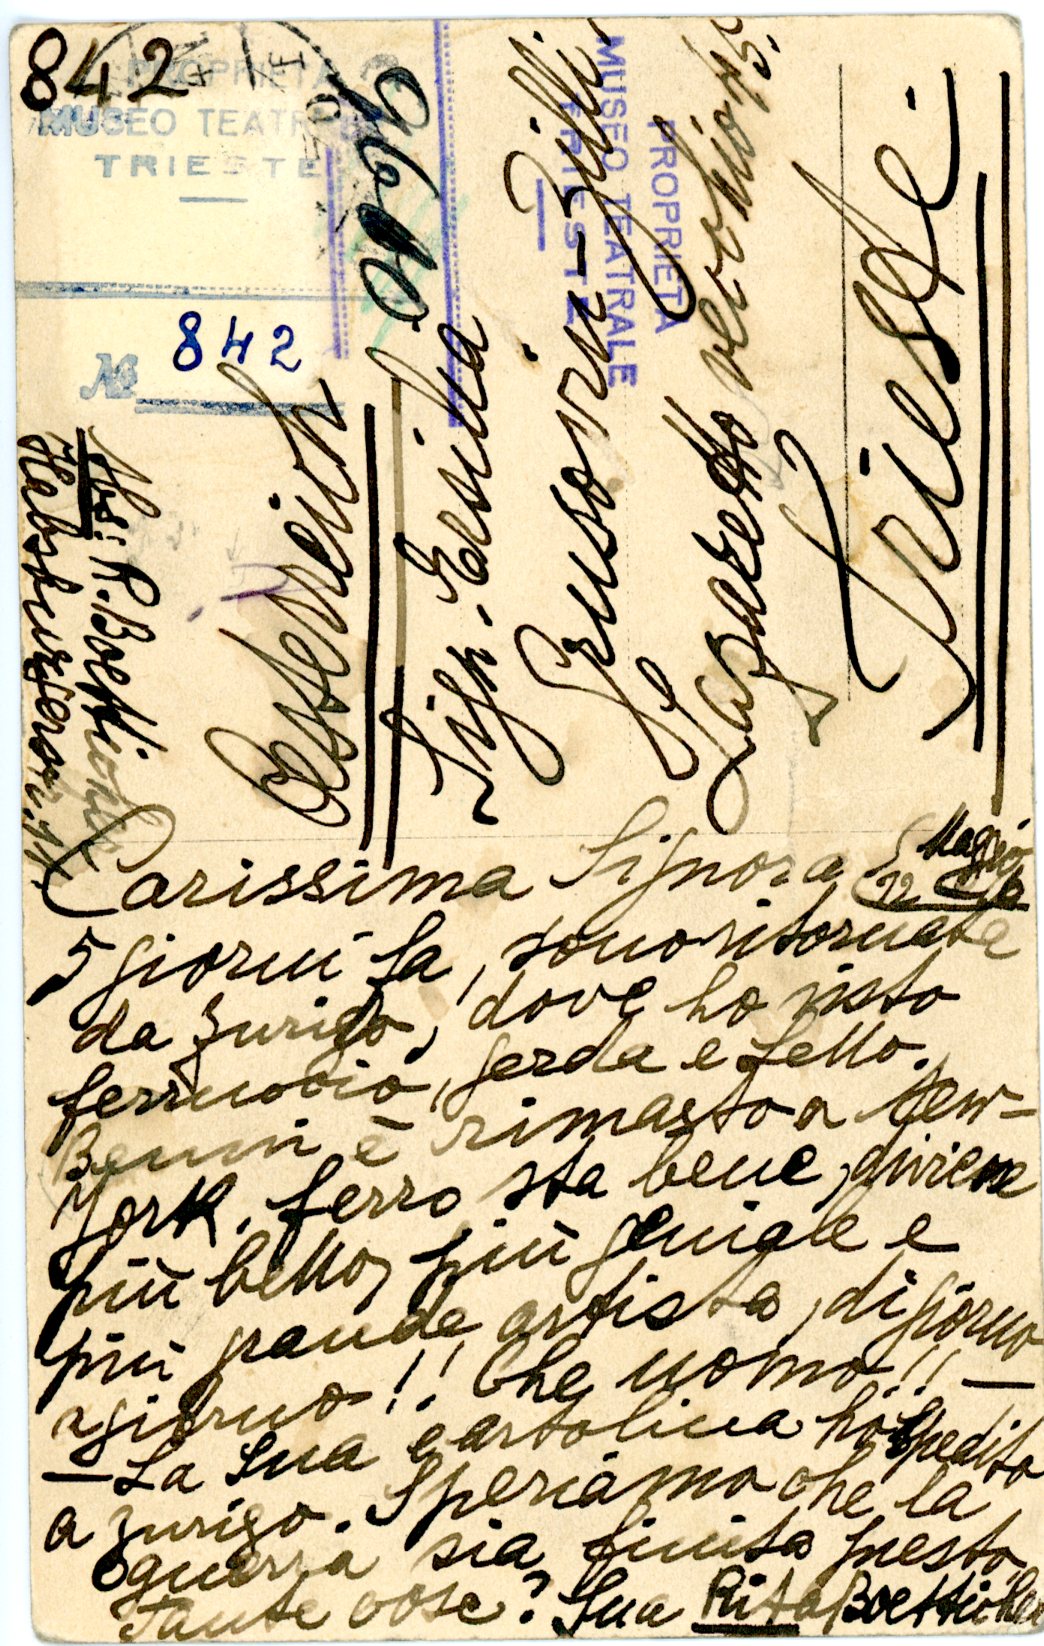 842
PROPRIETÀ
MUSEO TEATRALE
TRIESTE
№ 842
PROPRIETÀ
MUSEO TEATRALE
TRIESTE
Oesterreich
Sign. Ersilia
Grusovin-Zilli
Lazzeretto vecchio
Trieste.
Abs: R. Boetticher
Habsburgerstr. 11.
Carissima Signora 12 Maggio
5 giorni fa, sono ritornata
da Zurigo, dove ho visto
ferruccio, gerda e Lello.
Benni è rimasto a New-
York. ferro sta bene, diviene
più bello, più geniale e
più grande artista, di giorno
a giorno!! Che uomo!! —
— La Sua cartolina ho spedito
a Zurigo. Speriamo che la
guerra sia finita presto.
Tante cose! Sua Rita Boetticher